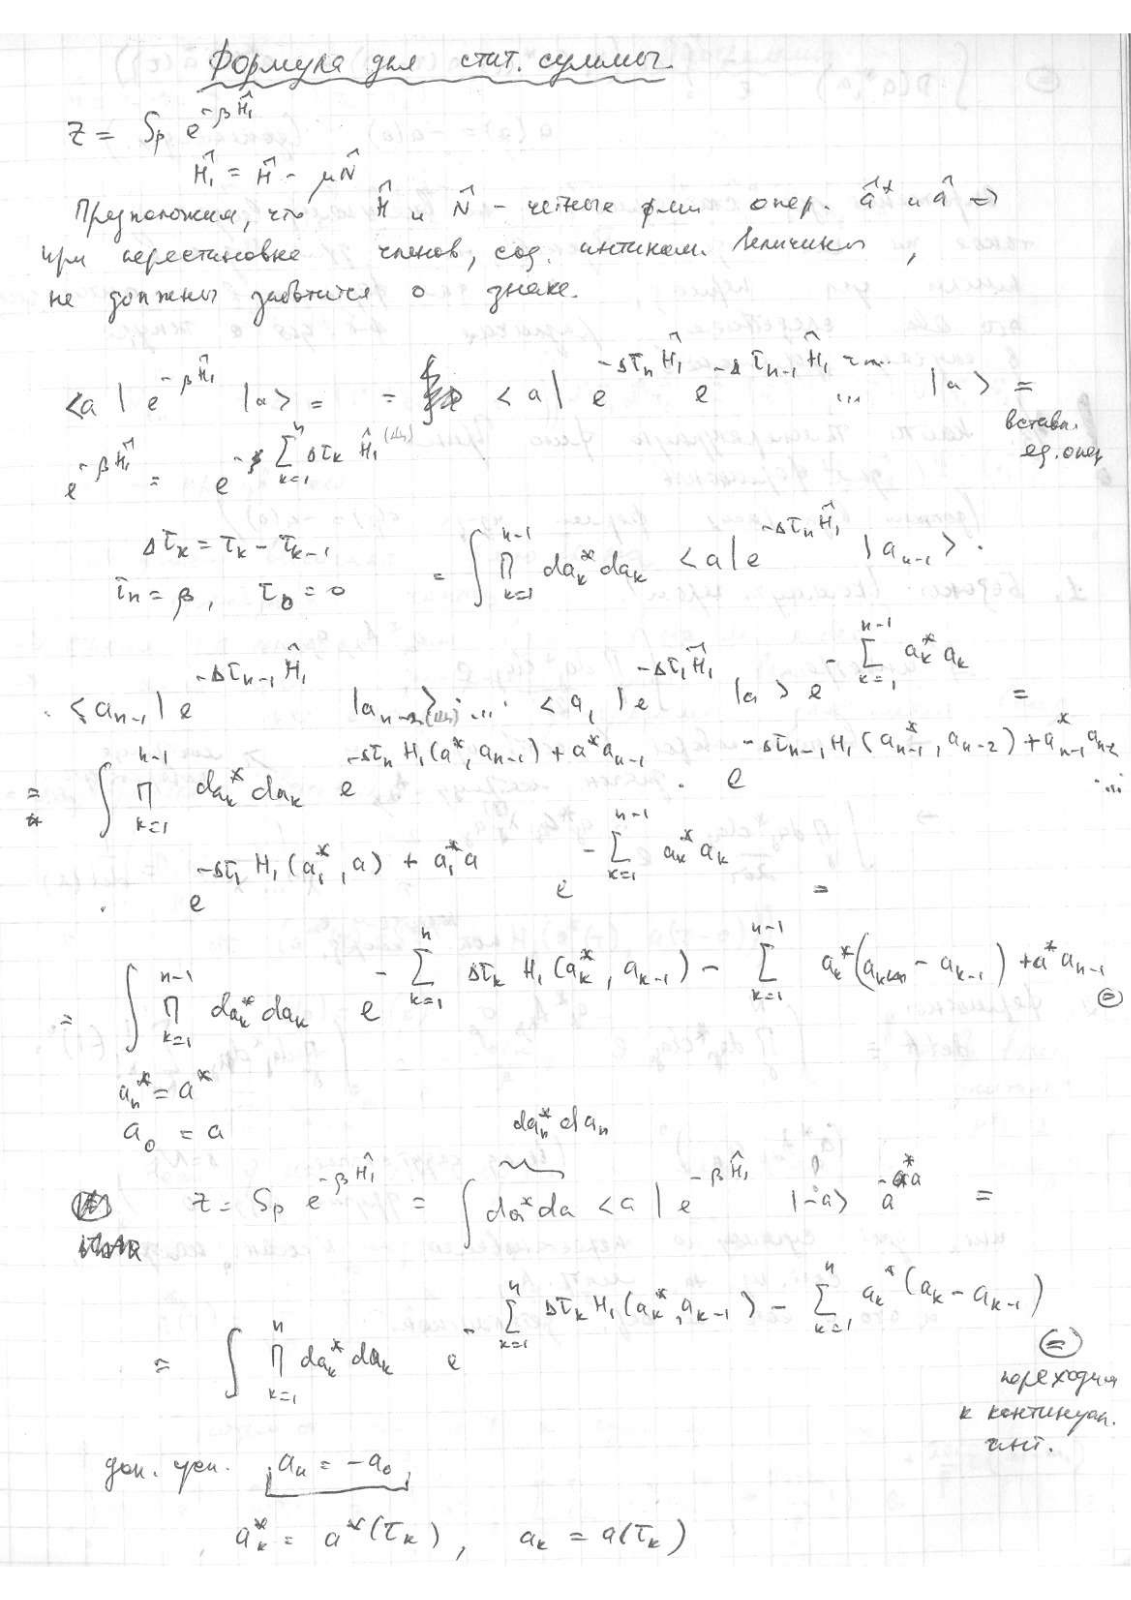 Формула для стат. суммы.
Z = Sp e^{-βĤ₁}
Ĥ₁ = Ĥ - μN̂
Предположим, что Ĥ и N̂ - четные ф-ии опер. â* и â ⇒
при перестановке членов, сод. антиком. величины,
не должны заботится о знаке.
<a| e^{-βĤ₁} |a> = = <a| e^{-Δτₙ Ĥ₁} e^{-Δτₙ₋₁ Ĥ₁} ... |a> =
встав. ед. опер
e^{-βĤ₁} = e^{-∑_{k=1}^{n} Δτₖ Ĥ₁}
Δτₖ = τₖ - τₖ₋₁
τₙ = β, τ₀ = 0
= ∫ ∏_{k=1}^{n-1} daₖ* daₖ <a| e^{-Δτₙ Ĥ₁} |aₙ₋₁> ·
· <aₙ₋₁| e^{-Δτₙ₋₁ Ĥ₁} |aₙ₋₂> ... <a₁| e^{-Δτ₁ Ĥ₁} |a> e^{-∑_{k=1}^{n-1} aₖ* aₖ} =
= ∫ ∏_{k=1}^{n-1} daₖ* daₖ e^{-Δτₙ H₁(a*, aₙ₋₁) + a* aₙ₋₁} · e^{-Δτₙ₋₁ H₁(aₙ₋₁*, aₙ₋₂) + aₙ₋₁* aₙ₋₂} ...
· e^{-Δτ₁ H₁(a₁*, a) + a₁* a} e^{-∑_{k=1}^{n-1} aₖ* aₖ} =
= ∫ ∏_{k=1}^{n-1} daₖ* daₖ e^{-∑_{k=1}^{n} Δτₖ H₁(aₖ*, aₖ₋₁) - ∑_{k=1}^{n-1} aₖ*(aₖ - aₖ₋₁) + a* aₙ₋₁} ⊜
aₙ* = a*
a₀ = a
daₙ* daₙ
Z = Sp e^{-βĤ₁} = ∫ da* da <a| e^{-βĤ₁} |-a> a^{-a*a} =
= ∫ ∏_{k=1}^{n} daₖ* daₖ e^{-∑_{k=1}^{n} Δτₖ H₁(aₖ*, aₖ₋₁) - ∑_{k=1}^{n} aₖ*(aₖ - aₖ₋₁)} ⊜
переходим
к континуал.
инт.
доп. усл. aₙ = -a₀
aₖ* = a*(τₖ), aₖ = a(τₖ)